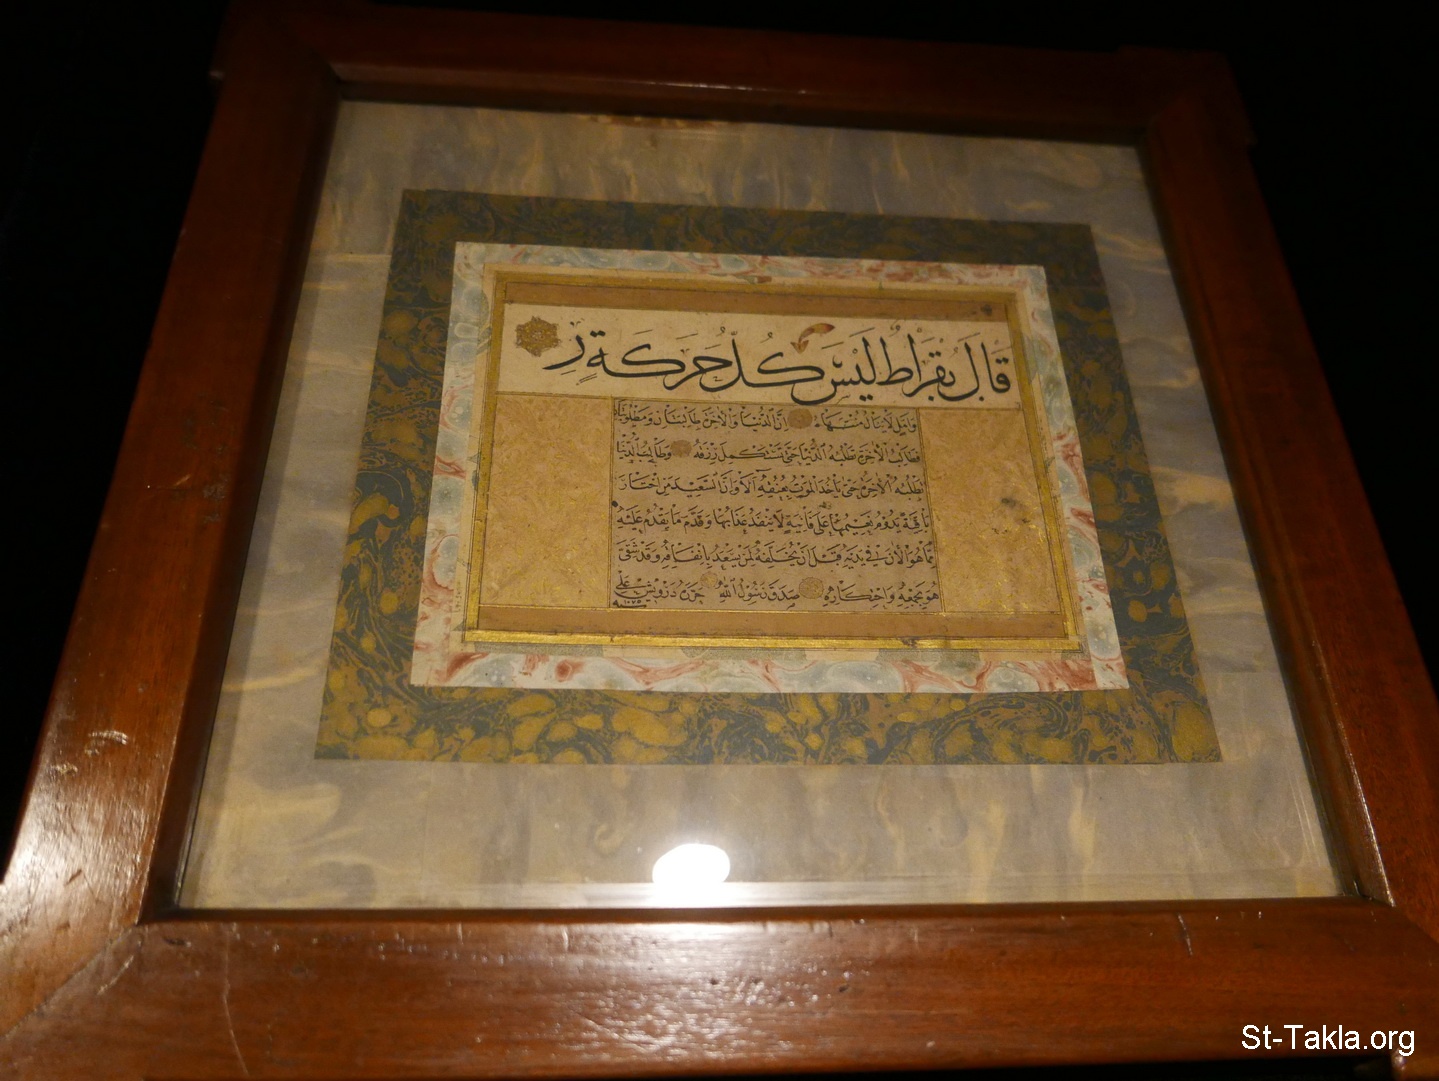 قَالَ بُقْرَاطُ لَيْسَ كُلُّ حَرَكَةٍ رِ
وَامَلٍ لَا يَنَالُ مُنْتَهَاهُ اِنَّ الدُّنْيَا وَالْاٰخِرَةَ طَالِبَتَانِ وَمَطْلُوبَتَانِ
فَطَالِبُ الْاٰخِرَةِ تَطْلُبُهُ الدُّنْيَا حَتَّى تَسْتَكْمِلَ رِزْقَهُ وَطَالِبُ الدُّنْيَا
تَطْلُبُهُ الْاٰخِرَةُ حَتَّى يَأْخُذَ الْمَوْتُ بِعُنُقِهِ اَلَا وَاِنَّ السَّعِيدَ مَنِ اخْتَارَ
بَاقِيَةً يَدُومُ نَعِيمُهَا عَلَى فَانِيَةٍ لَا يَنْفَدُ عَذَابُهَا وَقَدَّمَ مَا يَقْدُمُ عَلَيْهِ
مِمَّا هُوَ الْاٰنَ فِي يَدَيْهِ قَبْلَ اَنْ يُخَلِّفَهُ لِمَنْ يَسْعَدُ بِاِنْفَاقِهِ وَقَدْ شَقِيَ
هُوَ بِجَمْعِهِ وَاحْتِكَارِهِ صَدَقَ رَسُولُ اللّٰهِ دَرْوِيشْ عَلِي
St-Takla.org